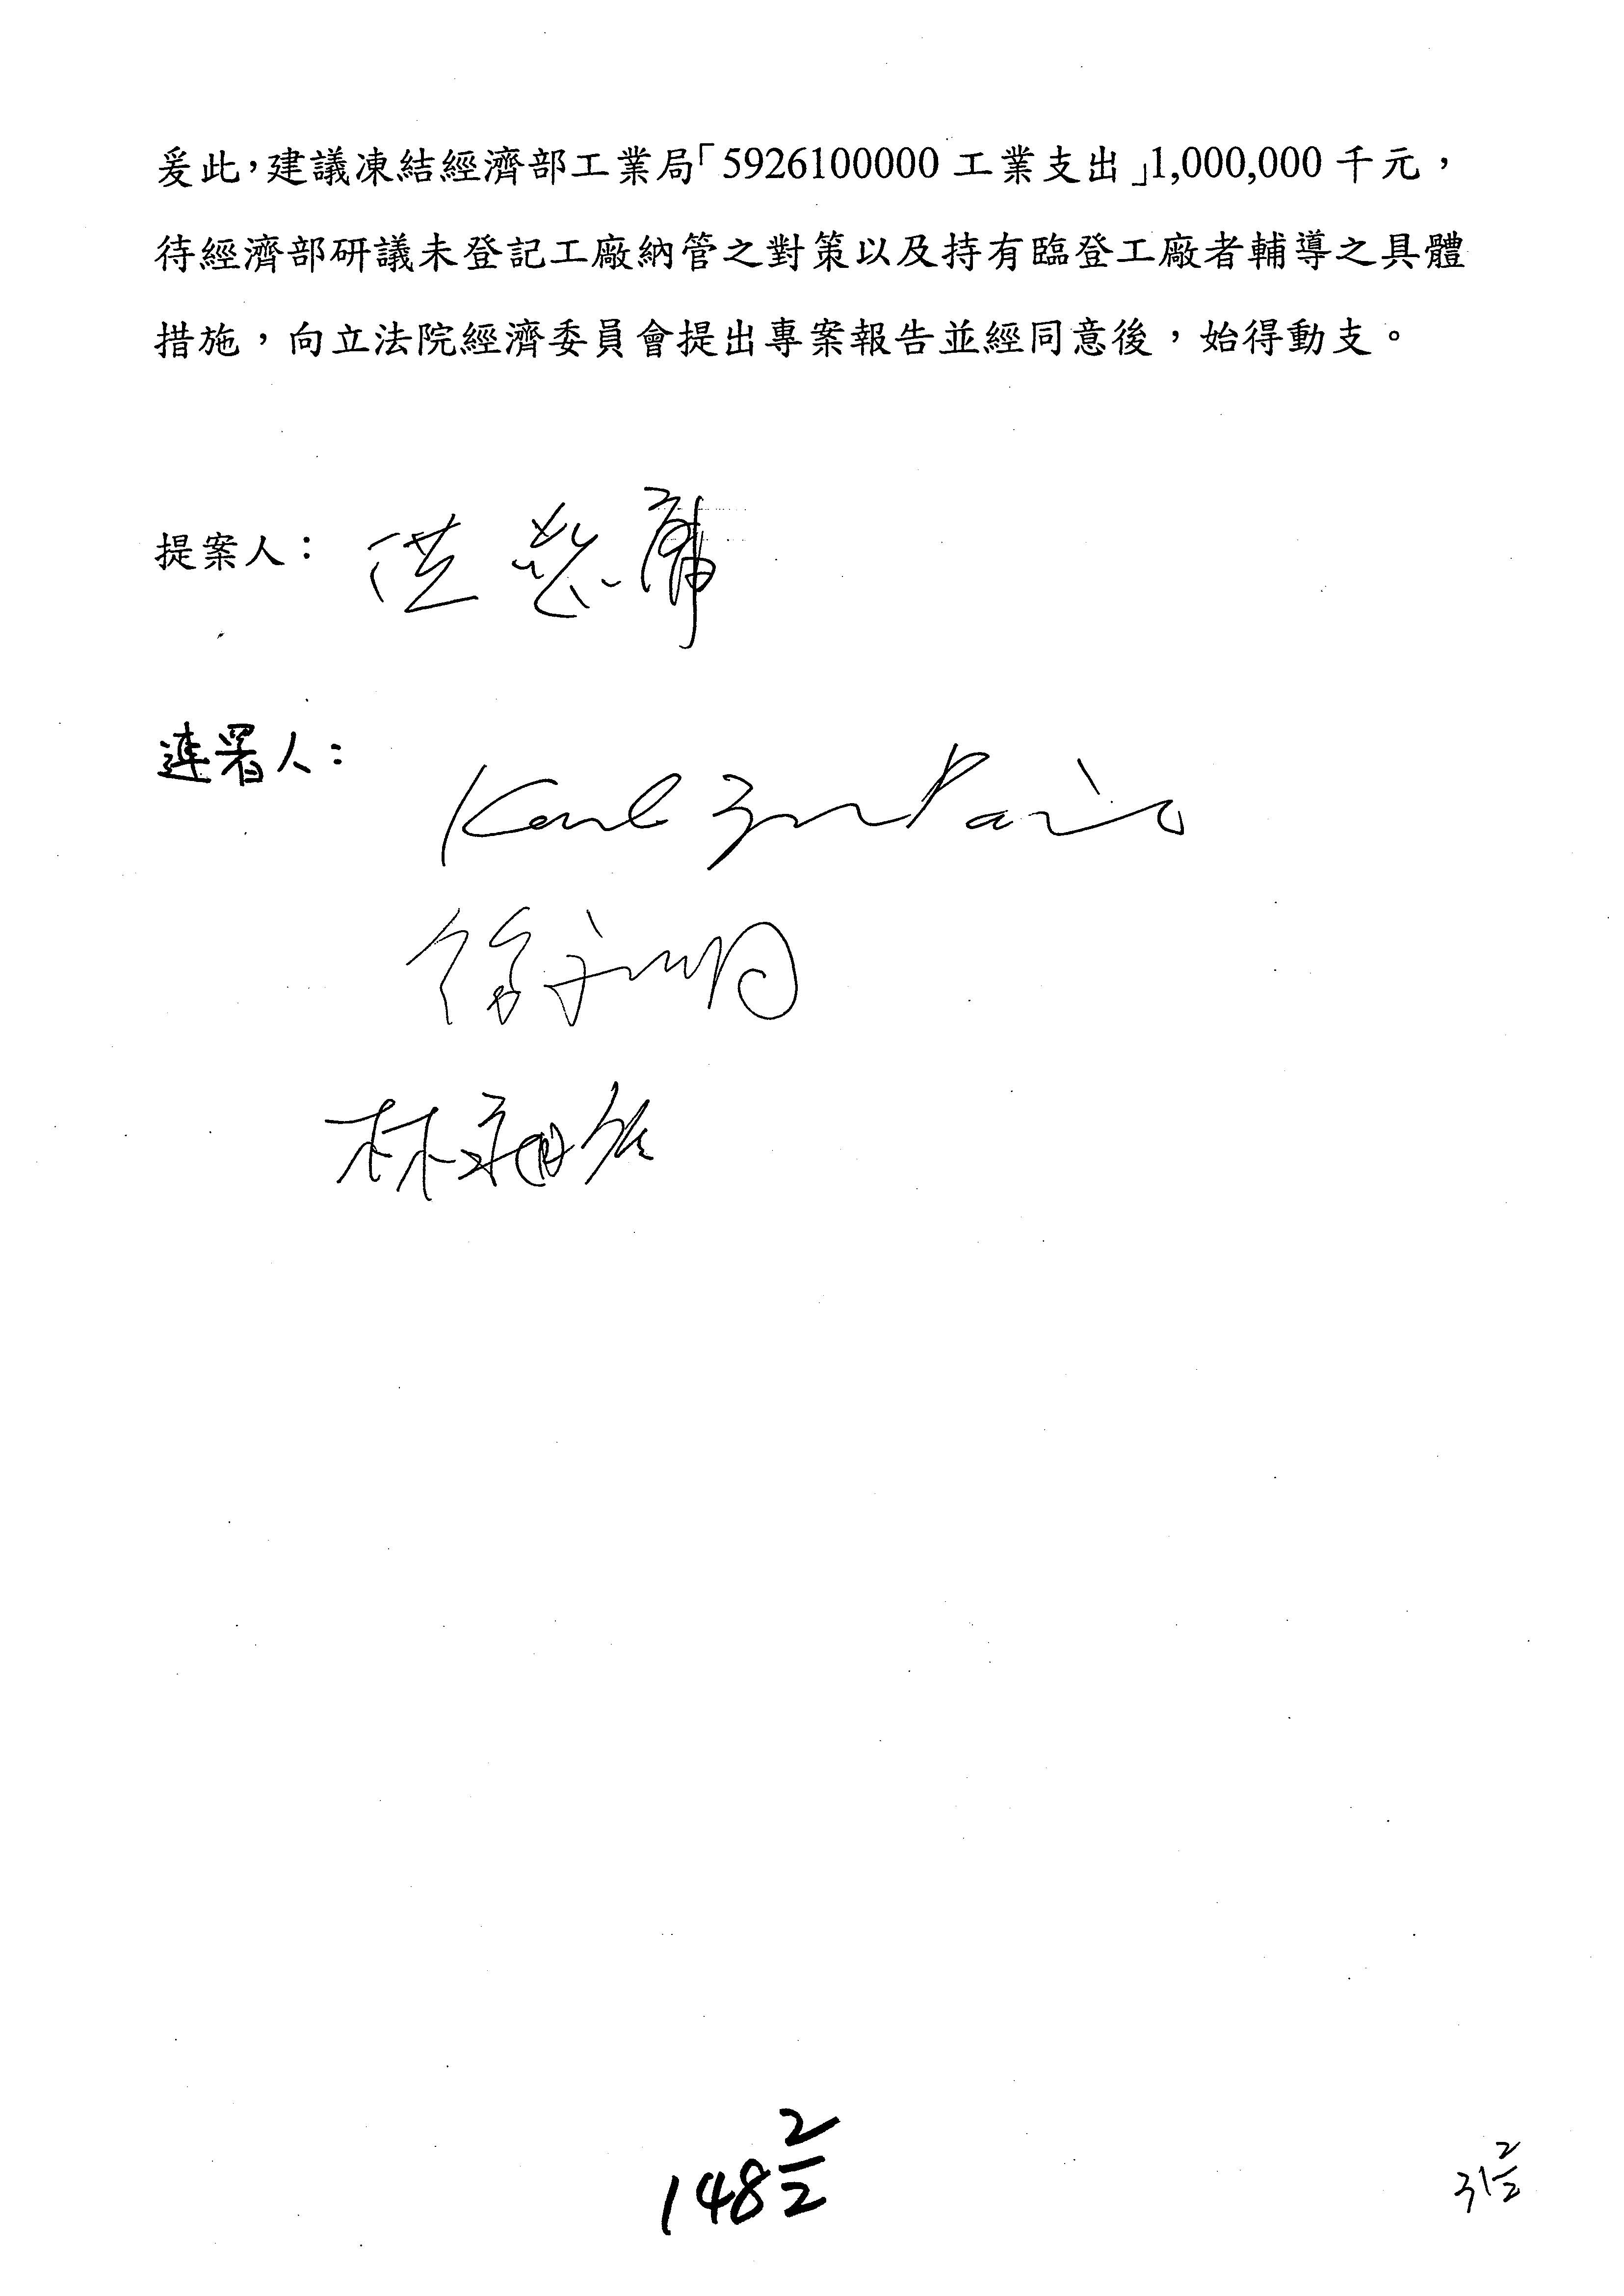 爰此，建議凍結經濟部工業局「5926100000 工業支出」1,000,000 千元，
待經濟部研議未登記工廠納管之對策以及持有臨登工廠者輔導之具體
措施，向立法院經濟委員會提出專案報告並經同意後，始得動支。
提案人：洪慈庸
連署人：
徐永明
林昶佐
148 2/2
31 2/2